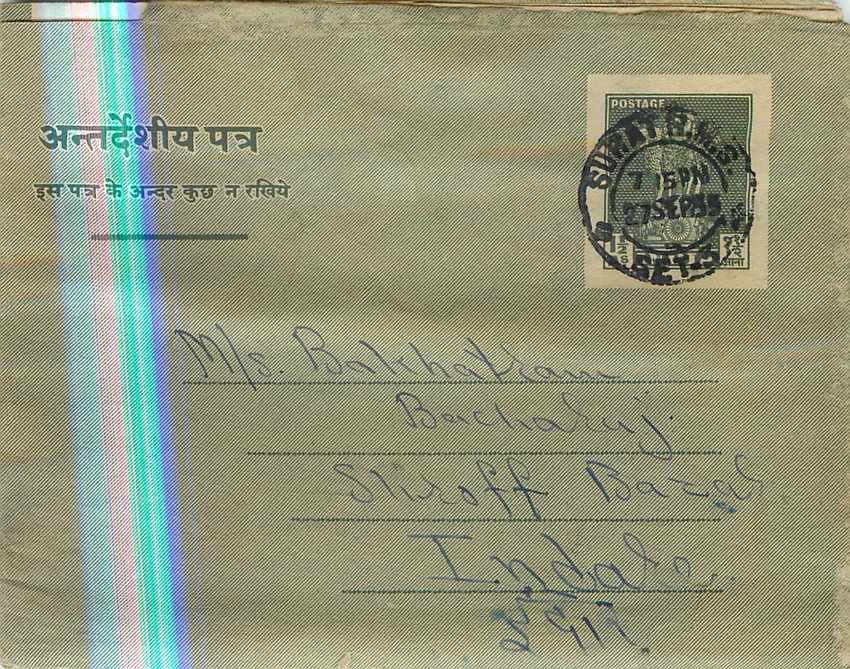 अन्तर्देशीय पत्र
इस पत्र के अन्दर कुछ न रखिये
POSTAGE
SURAT R.M.S.
7 15PM
27SEP
SET-3
1 1/2 AS
१ १/२ आना
M/s. Bakhatram
Bacharaj.
Shroff Bazar.
Indore.